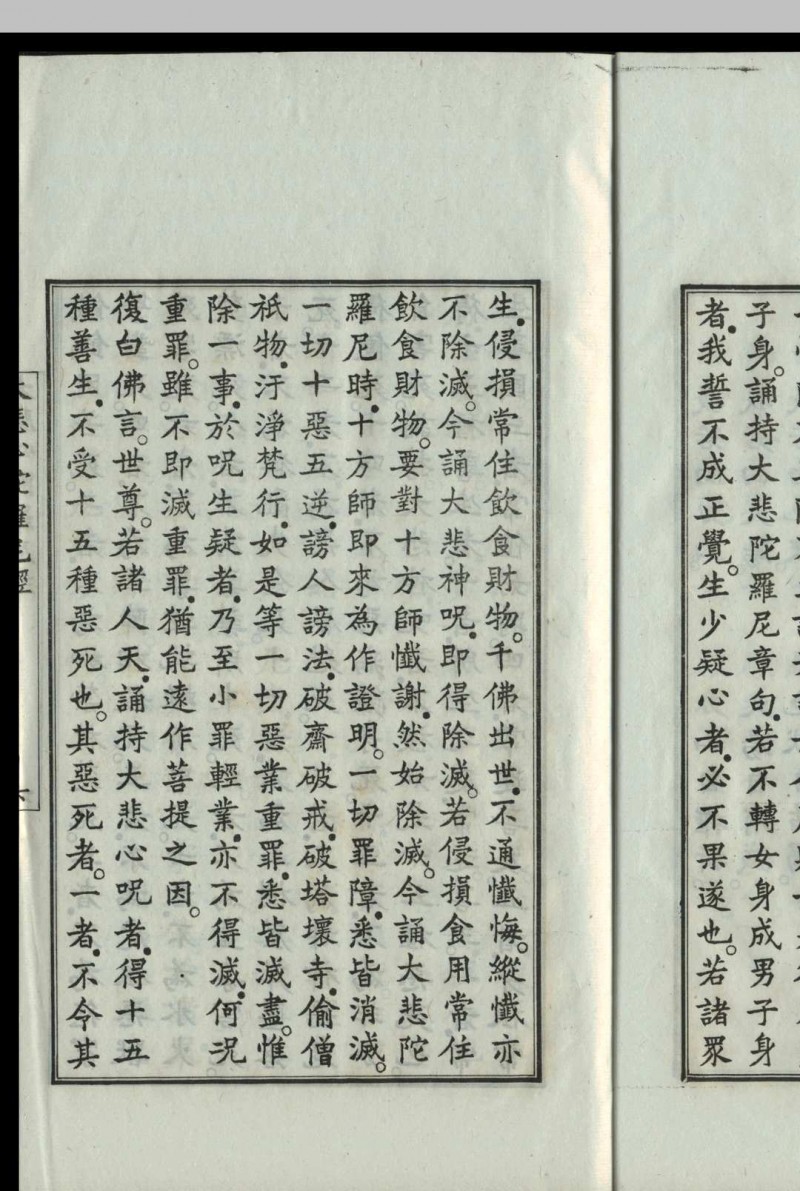 子身。誦持大悲陀羅尼章句、若不轉女身成男子身
者、我誓不成正覺。生少疑心者、必不果遂也。若諸眾
生、侵損常住飲食財物。千佛出世、不通懺悔。縱懺亦
不除滅。今誦大悲神呪、即得除滅。若侵損食用常住
飲食財物。要對十方師懺謝、然始除滅。今誦大悲陀
羅尼時、十方師即來為作證明。一切罪障、悉皆消滅。
一切十惡五逆、謗人謗法、破齋破戒、破塔壞寺、偷僧
祇物、汙淨梵行、如是等一切惡業重罪、悉皆滅盡。惟
除一事、於呪生疑者、乃至小罪輕業、亦不得滅、何況
重罪。雖不即滅重罪、猶能遠作菩提之因。
復白佛言。世尊。若諸人天、誦持大悲心呪者、得十五
種善生、不受十五種惡死也。其惡死者。一者、不令其
大悲心陀羅尼經